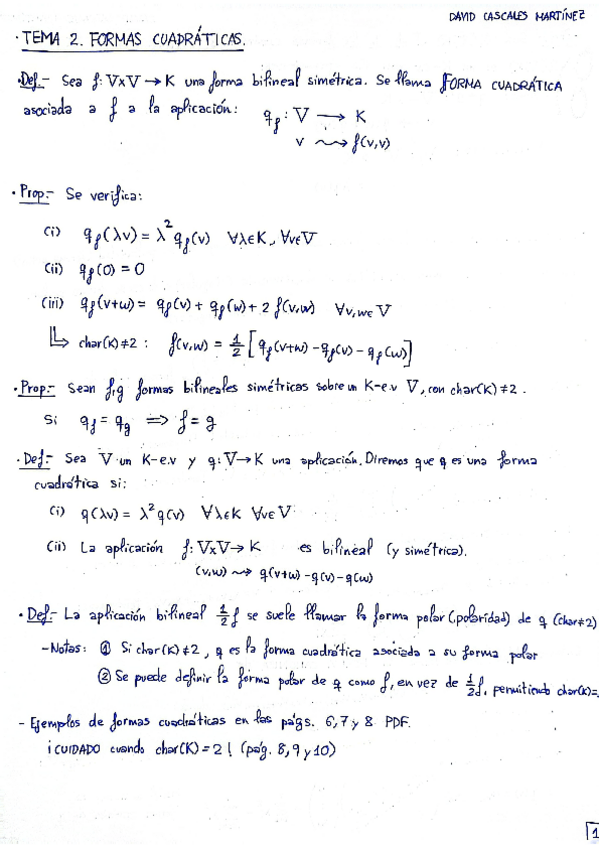 DAVID CASCALES MARTÍNEZ
· TEMA 2. FORMAS CUADRÁTICAS.
· Def.- Sea f: V×V → K una forma bilineal simétrica. Se llama FORMA CUADRÁTICA
asociada a f a la aplicación: q_f : V → K
v ⇝ f(v,v)
· Prop.- Se verifica:
(i) q_f(λv) = λ² q_f(v) ∀λ∈K, ∀v∈V
(ii) q_f(0) = 0
(iii) q_f(v+w) = q_f(v) + q_f(w) + 2 f(v,w) ∀v,w∈V
↳ char(K)≠2 : f(v,w) = 1/2 [q_f(v+w) - q_f(v) - q_f(w)]
· Prop.- Sean f,g formas bilineales simétricas sobre un K-e.v V, con char(K)≠2.
Si q_f = q_g ⟹ f = g
· Def.- Sea V un K-e.v y q: V→K una aplicación. Diremos que q es una forma
cuadrática si:
(i) q(λv) = λ² q(v) ∀λ∈K ∀v∈V
(ii) La aplicación f: V×V → K es bilineal (y simétrica).
(v,w) ⇝ q(v+w) - q(v) - q(w)
· Def.- La aplicación bilineal 1/2 f se suele llamar la forma polar (polaridad) de q (char≠2)
- Notas: ① Si char(K)≠2, q es la forma cuadrática asociada a su forma polar
② Se puede definir la forma polar de q como f, en vez de 1/2 f, permitiendo char(K)=
- Ejemplos de formas cuadráticas en las págs. 6, 7 y 8 PDF.
¡CUIDADO cuando char(K) = 2! (pág. 8, 9 y 10)
1